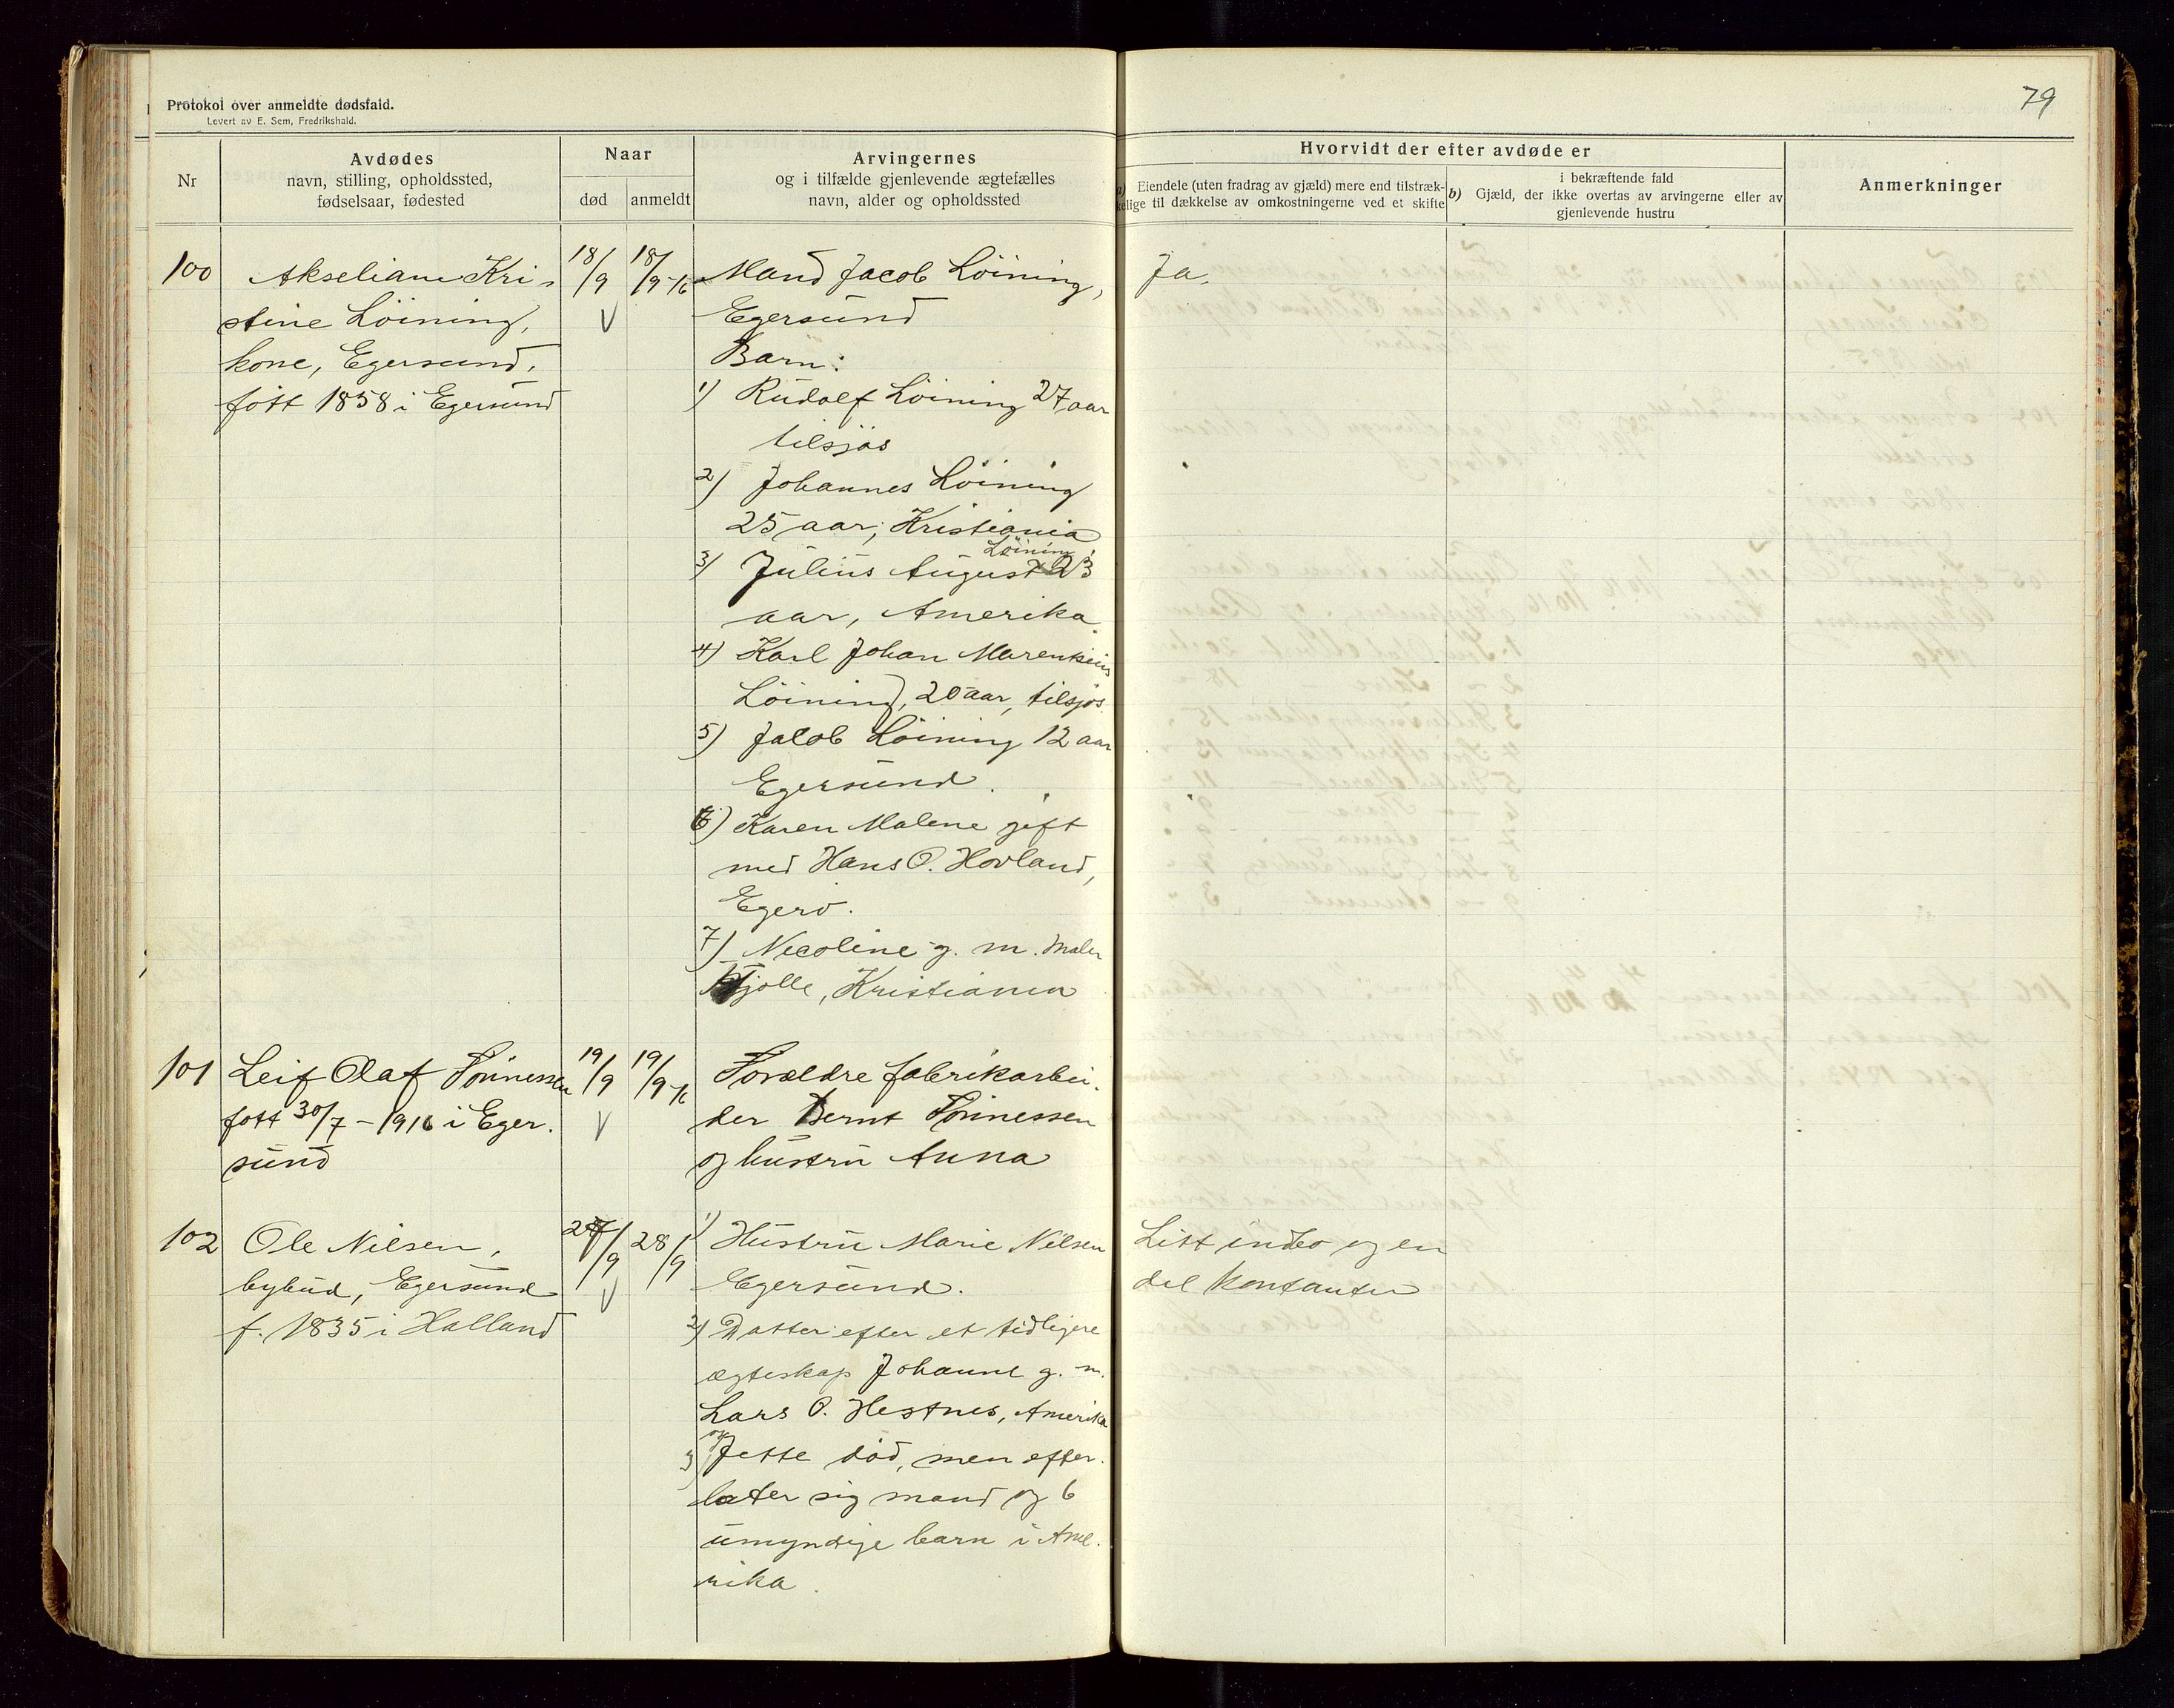 79
Protokol over anmeldte dødsfald.
Levert av E. Sem, Fredrikshald.
Nr
Avdødes
navn, stilling, opholdssted,
fødselsaar, fødested
Naar
død
anmeldt
Arvingernes
og i tilfælde gjenlevende ægtefælles
navn, alder og opholdssted
Hvorvidt der efter avdøde er
a) Eiendele (uten fradrag av gjæld) mere end tilstræk-
kelige til dækkelse av omkostningerne ved et skifte
i bekræftende fald
b) Gjæld, der ikke overtas av arvingerne eller av
gjenlevende hustru
Anmerkninger
100
Akseliane Kri-
stine Löining,
kone, Egersund,
fött 1858 i Egersund
18/9
18/9-16
Mand Jacob Löining,
Egersund
Barn:
1) Rudolf Löining 27 aar
tilsjös
2) Johannes Löining
25 aar, Kristiania
Löining
3) Julius August 23
aar, Amerika
4) Karl Johan Marenius
Löining, 20 aar, tilsjös.
5) Jacob Löining 12 aar
Egersund.
6) Karen Malene gift
med Hans O. Hovland,
Egerö.
7) Nicoline g. m. Maler
Fjolle, Kristiania
Ja.
101
Leif Olaf Tönnessen
fött 30/7-1916 i Eger-
sund
19/9
19/9-16
Forældre fabrikarbei-
der Bernt Tönnessen
og hustru Anna
102
Ole Nilsen,
bybud, Egersund
f. 1835 i Halland
27/9
28/9
1) Hustru Marie Nilsen
Egersund.
2) Datter efter et tidligere
ægteskap Johanne g. m.
Lars O. Hestnes, Amerika
og
3 Jette död, men efter-
later sig mand og 6
umyndige barn i Ame-
rika.
Litt indbo og en
del kontanter